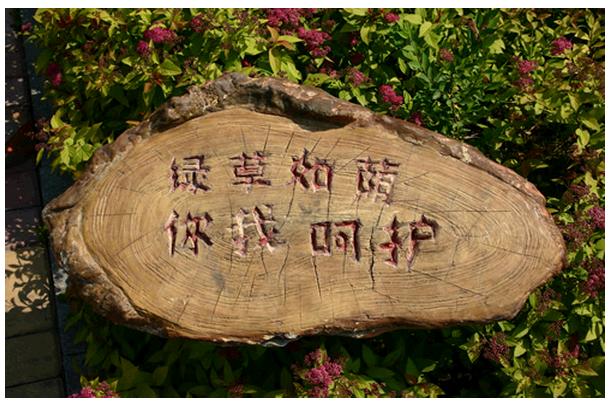 绿草如茵
你我呵护